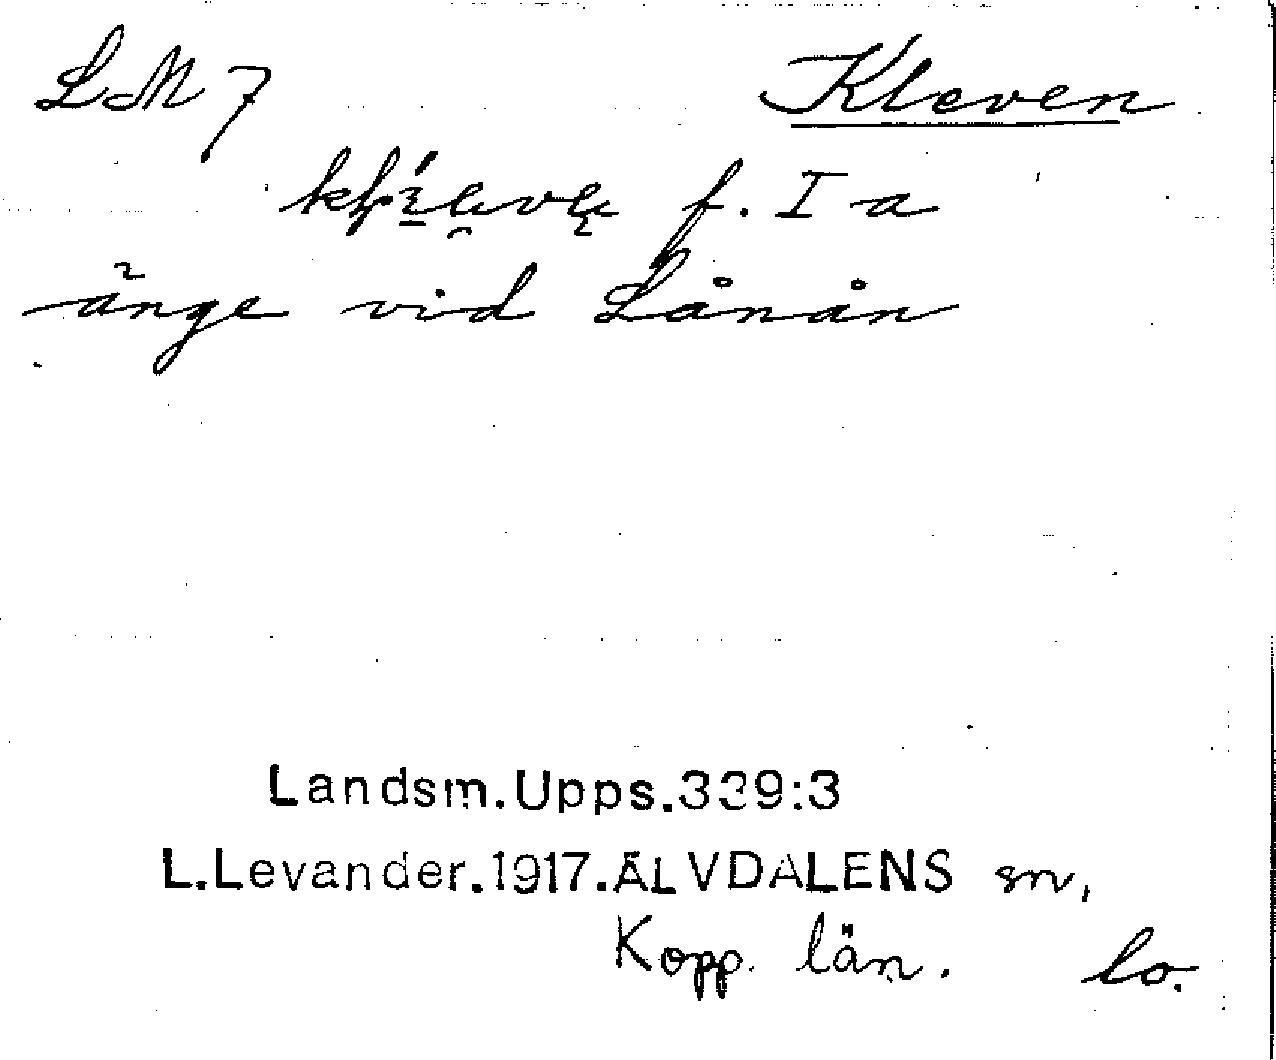 LM 7 Kleven
f. I a
änge vid Lånån
Landsm.Upps.339:3
L.Levander.1917.ÄLVDALENS sn,
Kopp. län. lo.